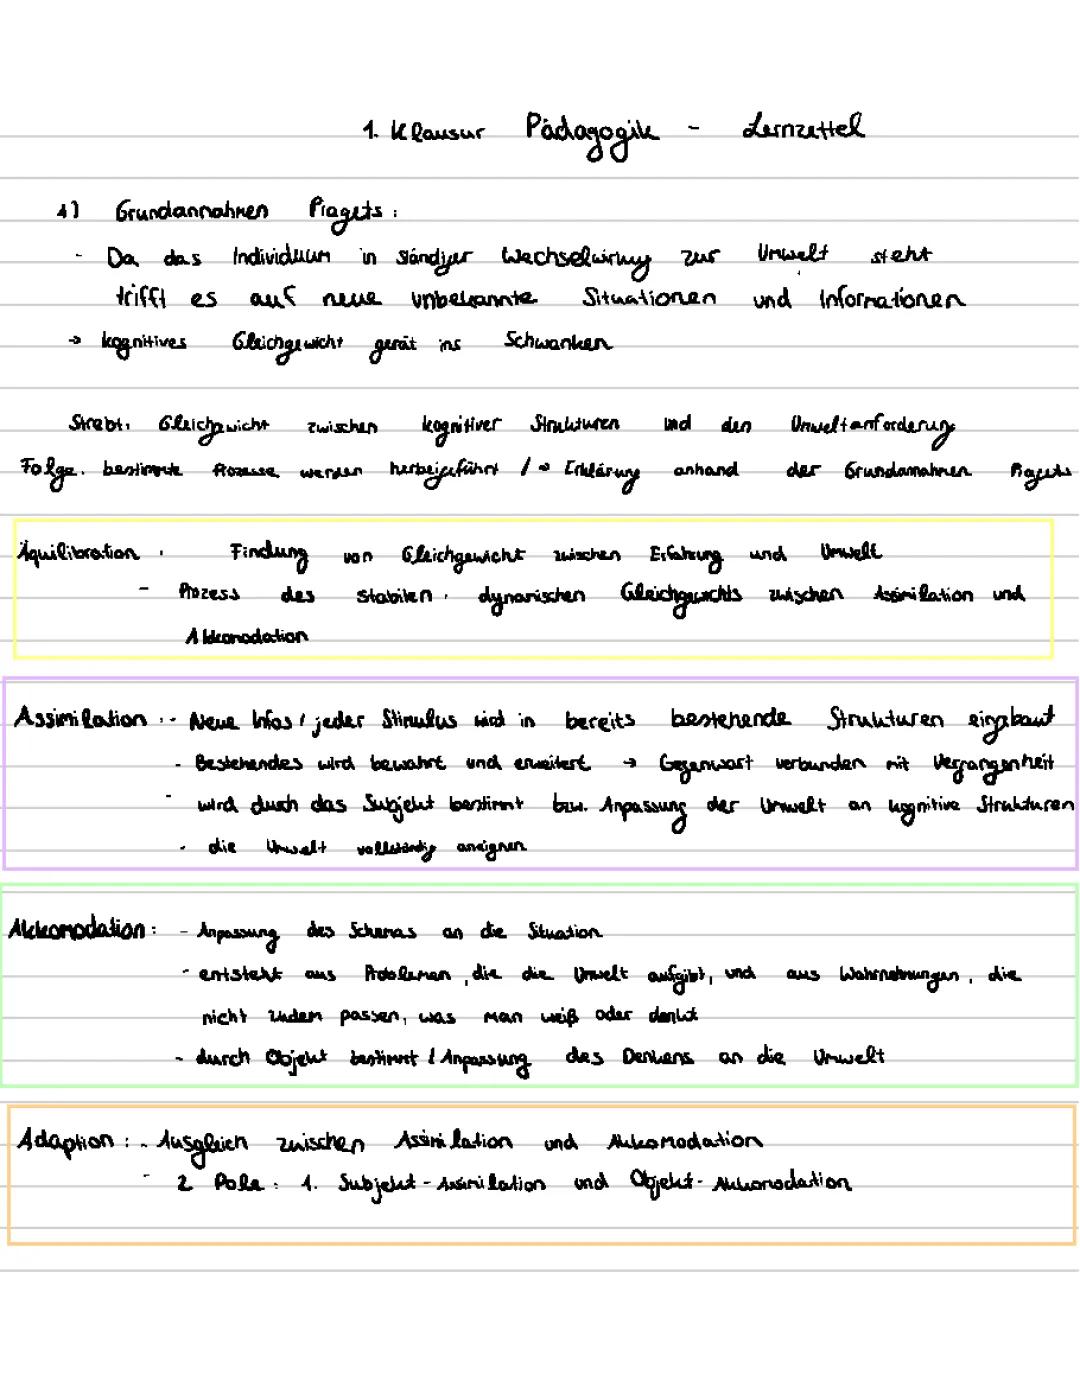 1. Klausur Pädagogik - Lernzettel
1) Grundannahmen Piagets:
- Da das Individuum in ständiger Wechselwirkung zur Umwelt steht
trifft es auf neue unbekannte Situationen und Informationen
→ kognitives Gleichgewicht gerät ins Schwanken
Strebt: Gleichgewicht zwischen kognitiver Strukturen und den Umweltanforderung
Folge: bestimmte Prozesse werden herbeigeführt / → Erklärung anhand der Grundannahmen Piagets
Äquilibration: Findung von Gleichgewicht zwischen Erfahrung und Umwelt
- Prozess des stabilen, dynamischen Gleichgewichts zwischen Assimilation und
Akkomodation
Assimilation: - Neue Infos / jeder Stimulus wird in bereits bestehende Strukturen eingebaut
- Bestehendes wird bewahrt und erweitert → Gegenwart verbunden mit Vergangenheit
- wird durch das Subjekt bestimmt bzw. Anpassung der Umwelt an kognitive Strukturen
- die Umwelt vollständig aneignen
Akkomodation: - Anpassung des Schemas an die Situation
- entsteht aus Problemen, die die Umwelt aufgibt, und aus Wahrnehmungen, die
nicht zudem passen, was man weiß oder denkt
- durch Objekt bestimmt / Anpassung des Denkens an die Umwelt
Adaption: - Ausgleich zwischen Assimilation und Akkomodation
- 2 Pole: 1. Subjekt - Assimilation und Objekt - Akkomodation